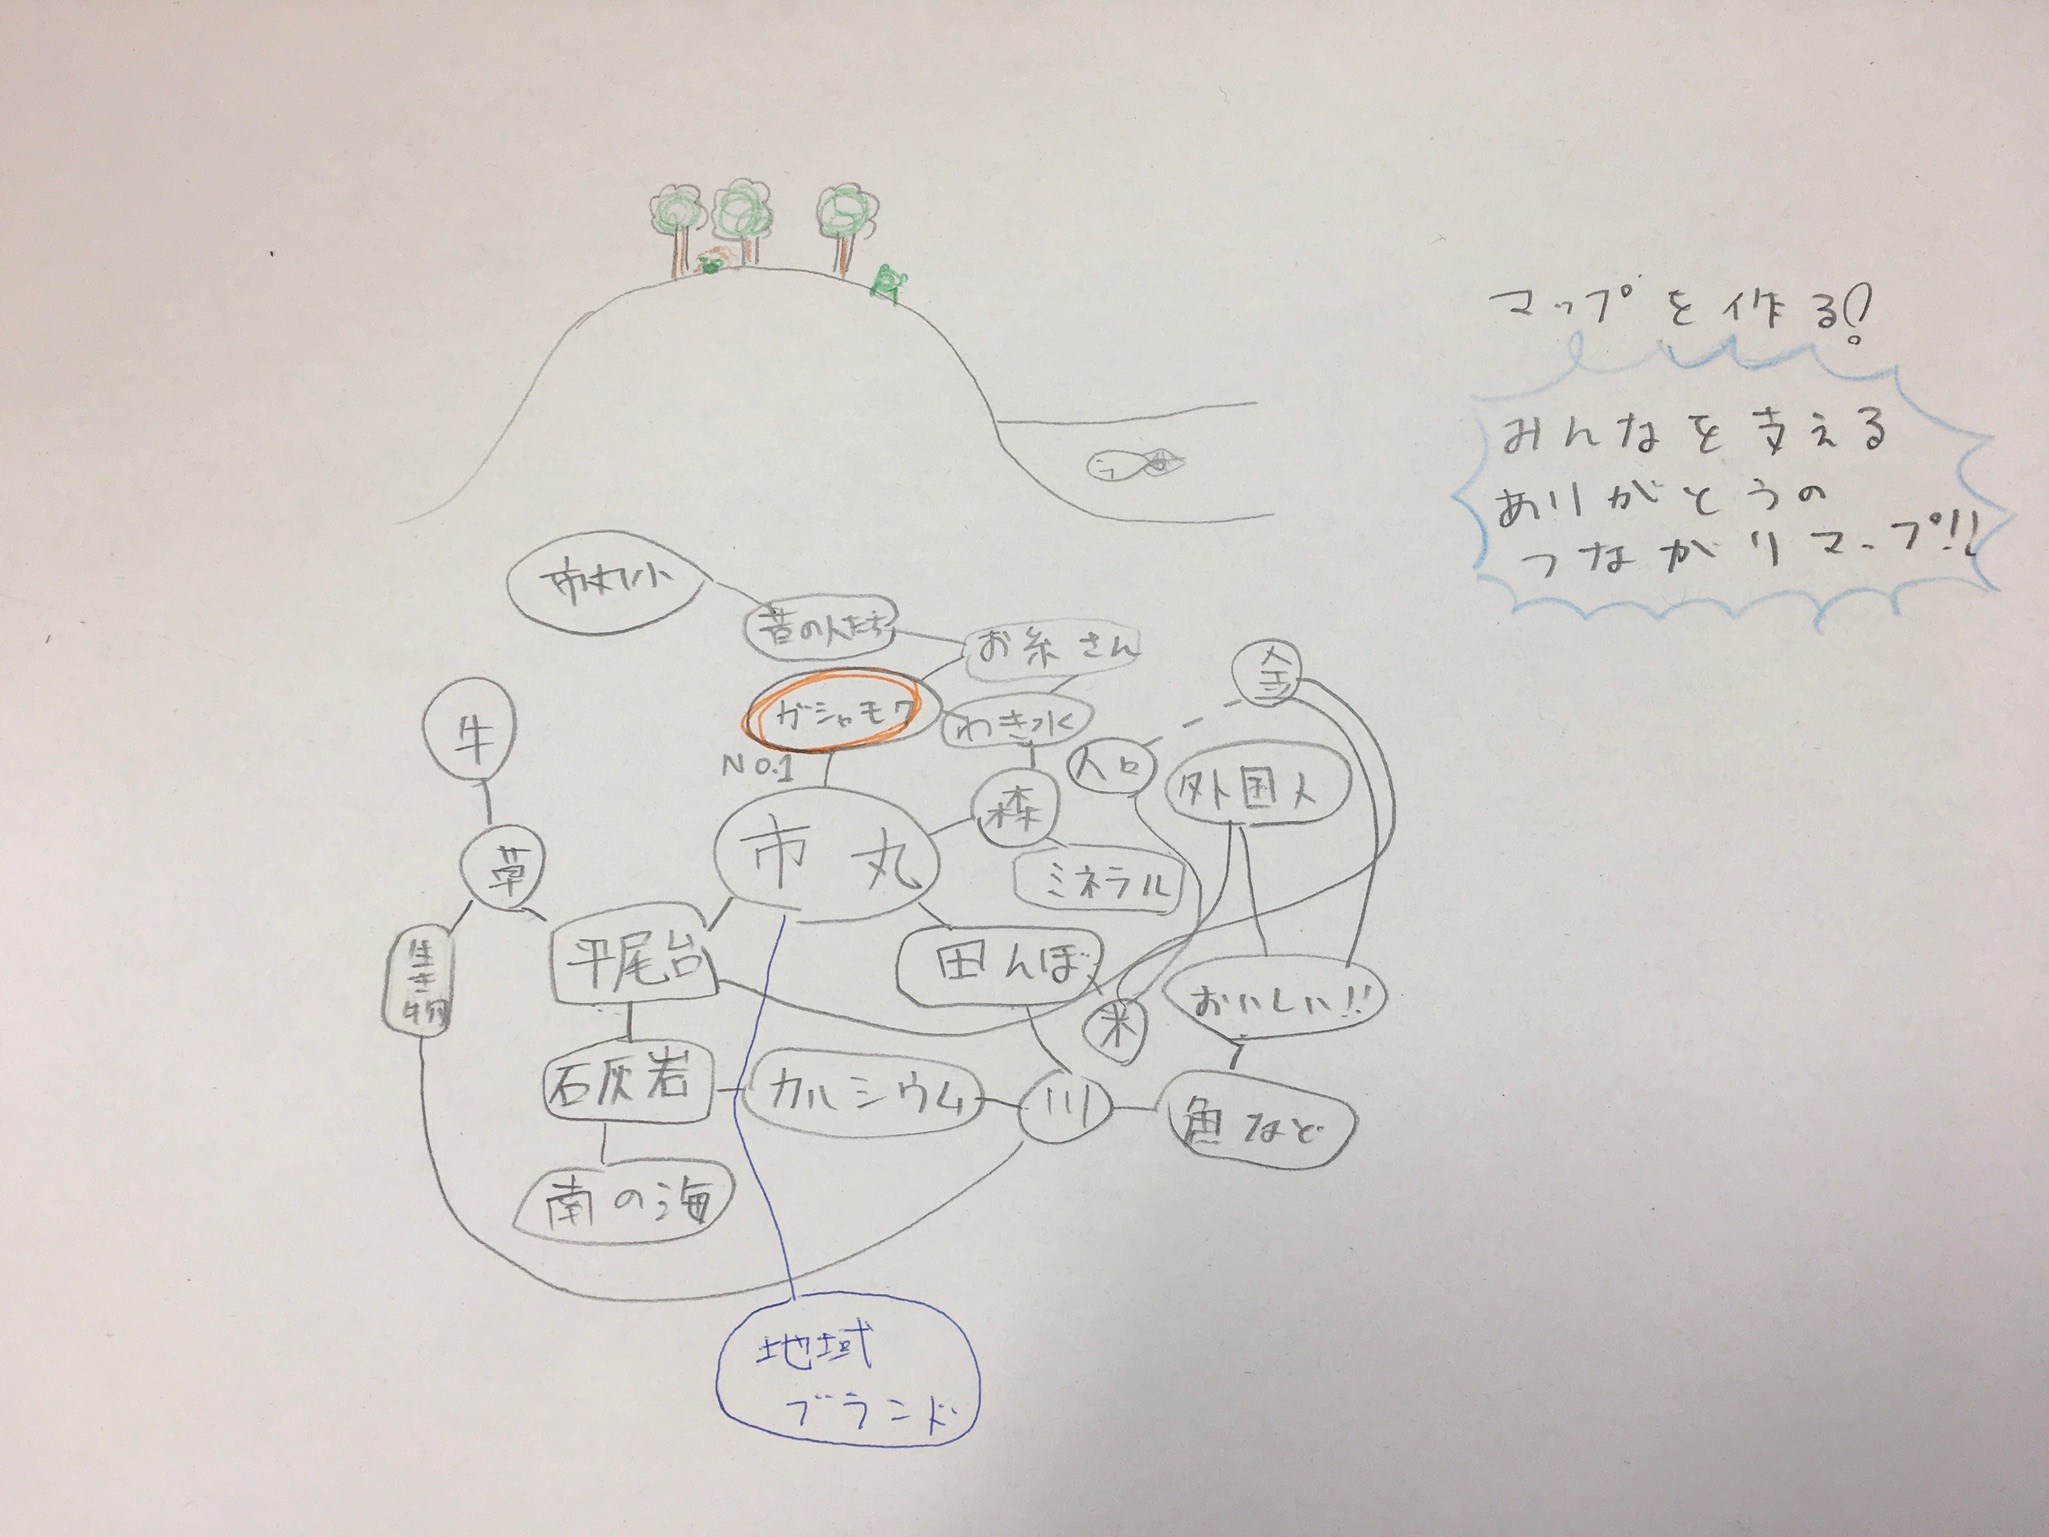 マップを作る!
みんなを支える
ありがとうの
つながりマップ!!
市丸小
昔の人たち
お糸さん
金
ガシャモク
わき水
NO.1
人口
外国人
牛
森
市丸
草
ミネラル
平尾台
田んぼ
生き物
おいしい!!
米
石灰岩
カルシウム
川
魚など
南の海
地域
ブランド